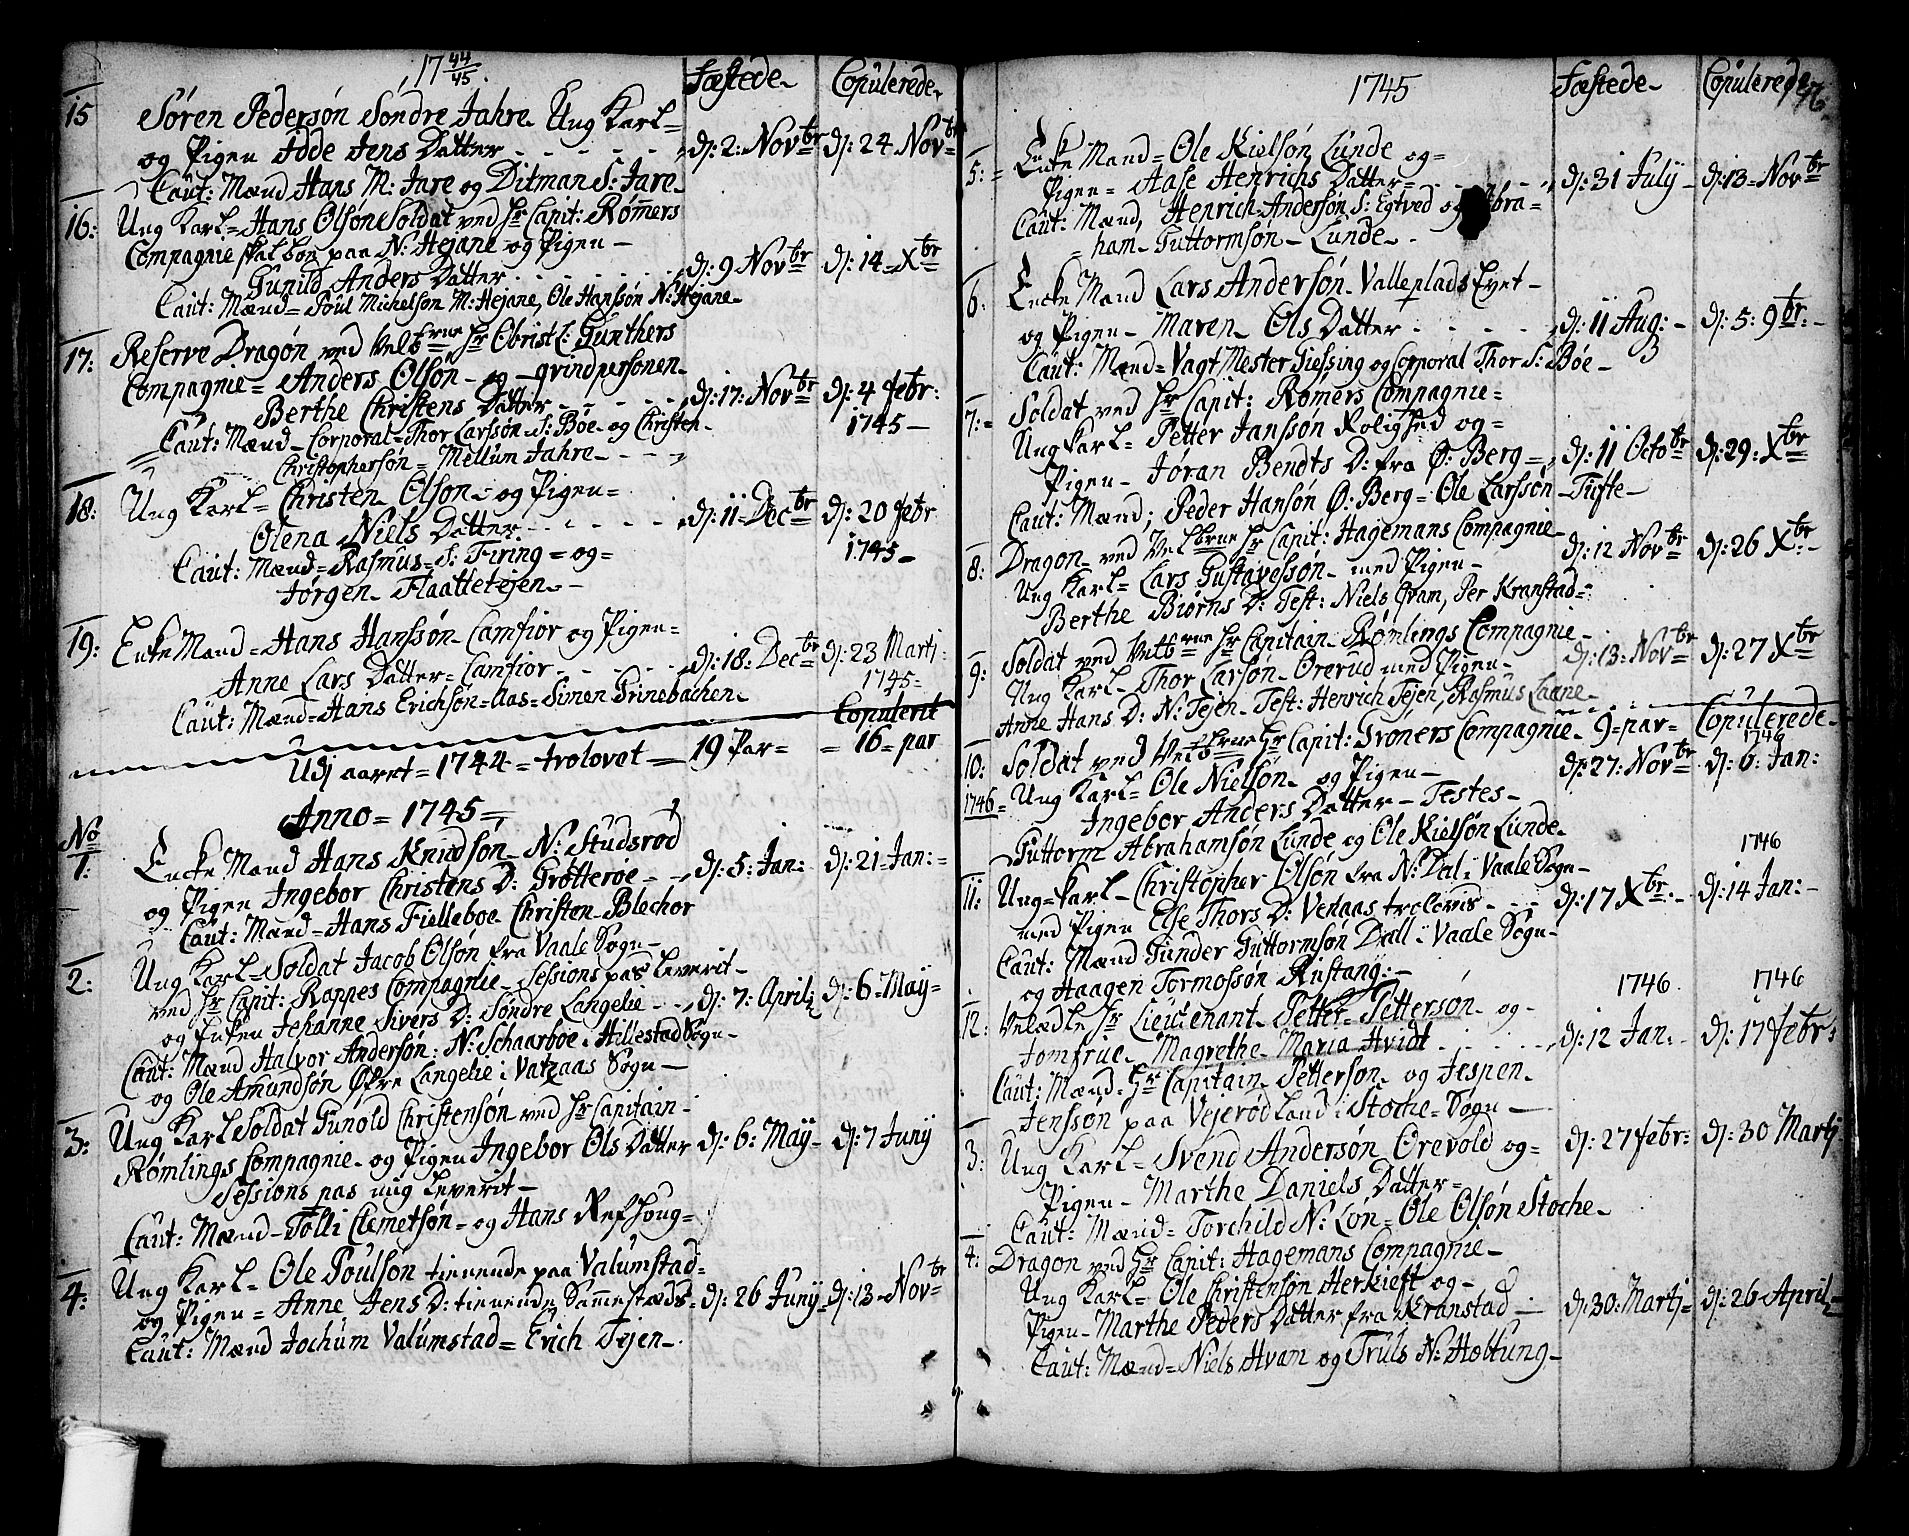 17 44/45. Fæstede Copulerede
15 Sören Pedersön Söndre Jahre Ung Karl=
og Pigen Idde Jens Datter dj: 2: Novbr dj: 24 Novbr
Caut: Mænd Hans M: Jare og Ditman S: Jare
16: Ung Karl= Hans Olsön Soldat ved Hr Capit: Römers
Compagnie skal boe paa N: Hejane og Pigen
Gunild Anders Datter dj: 9 Novbr dj: 14 Xbr
Caut: Mænd= Poul Michelsön M: Hejane, Ole Hansön N: Hejane
17: Reserve Dragön ved Velbrne Hr Obrist L: Gunthers
Compagnie= Anders Olsön og qvindpersonen
Berthe Christens Datter dj: 17: Novbr dj: 4 febr:
1745
Caut: Mænd Corporal= Thor Larsön S: Böe og Christen
Christophersön= Mellum Jahre
18: Ung Karl= Christen Olsön og Pigen=
Olena Niels Datter dj: 11 Decbr dj: 20 febr
1745
Caut: Mænd= Rasmus S: Firing= og=
Jörgen Flaattetejen
19: Enke Mand= Hans Hansön Camfior og Pigen=
Anne Lars Datter= Camfior dj: 18: Decbr dj: 23 Martj:
1745=
Caut: Mænd= Hans Erichsön Aas= Simen Grinebachen
Copulerit
Udj aaret= 1744= trolovet 19 Par= = 16= par
Anno= 1745=
No
1: Encke Mand Hans Knudsön N: Studsröd
og Pigen Ingebor Christens D: Grotteröe dj: 5: Jan: dj: 21 Jan:
Caut: Mænd= Hans Fielleboe Christen Blechor
2: Ung Karl= Soldat Jacob Olsön fra Vaale Sogn
ved Hr Capit: Rappes Compagnie Sessions pas leverit
og Enken Jehanne Sivers D: Söndre Langelie dj: 7: Aprili dj: 6 May=
Caut: Mænd Halvor Andersön: N: Schaarböe i Hillestad Sogn
og Ole Amundsön Öfre Langelie i Vatzaas Sogn
3: Ung Karl Soldat Gunold Christensön ved Hr Capitain
Römlings Compagnie og Pigen Ingebor Ols Datter dj: 6: May dj: 7 Juny
Sessions pas mig leverit
Caut: Mænd Tolli Clemetsön= og Hans Refsoug
4: Ung Karl= Ole Poulsön tienende paa Valumstad=
og Pigen= Anne Jens D: tienende Sammestæds dj: 26 Juny dj: 13 Novbr
Caut: Mænd Jochum Valumstad= Erich Tejen
1745 Fæstede Copulerede
5: Encke Mand= Ole Kielsön Lunde og=
Pigen= Aase Henrichs Datter dj: 31 July dj: 13 Novbr
Caut: Mænd, Henrich Andersön S: Egtved og Abra=
ham Guttormsön Lunde
6: Encke Mand Lars Andersön Valleplads Eyet
og Pigen Maren Ols Datter dj: 11 Aug: dj: 5: 9br:
Caut: Mænd= Vagt Mester Giessing og Corporal Thor S: Böe
7: Soldat ved Hr Capit: Römers Compagnie=
Ung Karl= Petter Jansön Rolighed og=
Pigen Jöran Bendts D: fra Ö: Berg= dj: 11 Octobr dj: 29: Xbr
Caut: Mænd, Peder Hansön Ö: Berg= Ole Larsön Tufte
8: Dragon ved Velbrne Hr Capit: Hagemans Compagnie
Ung Karl= Lars Gustavesön med Pigen dj: 12 Novbr dj: 26 Xbr:
Berthe Biörns D: Test: Niels Hvam, Per Kranstad
9: Soldat ved Velbrne Hr Capitain Römlings Compagnie
Ung Karl Thor Larsön Orerud med Pigen dj: 13: Novbr dj: 27 Xbr
Anne Hans D: N: Tejen Test: Henrich Tejen, Rasmus Laane
9 par Copulerede
10: Soldat ved Velbrne Hr Capit: Gröners Compagnie 1746
1746 Ung Karl= Ole Nielsön og Pigen dj: 27: Novbr dj: 6: Jan:
Ingebor Anders Datter Testes
Guttorm Abrahamsön Lunde og Ole Kielsön Lunde
1746
11: Ung Karl Christopher Olsön fra N: Dal i Vaale Sogn
med Pigen Else Thors D: Vexaas trolovis dj: 17 Xbr: dj: 14 Jan:
Caut: Mænd Gunder Guttormsön Dall i Vaale Sogn
og Haagen Tormossön Rustang:
1746 1746
12: Velædle Hr Lieutenant Petter Pettersön og
Jomfrue Magrethe Maria Hvidt dj: 12 Jan: dj: 17 febr:
Caut: Mænd Hr Capitain Petterson og Jespen
Jensson paa Vejeröd Land i Stoche Sogn
3: Ung Karl= Svend Andersön Orevold og= dj: 27 febr: dj: 30 Martj
Pigen Marthe Daniels Datter=
Caut: Mænd= Torchild N: Lön= Ole Olsön Stoche
4: Dragon ved Hr Capit: Hagemans Compagnie
Ung Karl= Ole Christensön Herkieft og
Pigen Marthe Peders Datter fra Kranstad dj: 30: Martj dj: 26 Aprili
Caut: Mænd= Niels Hvam og Truls N: Holtung